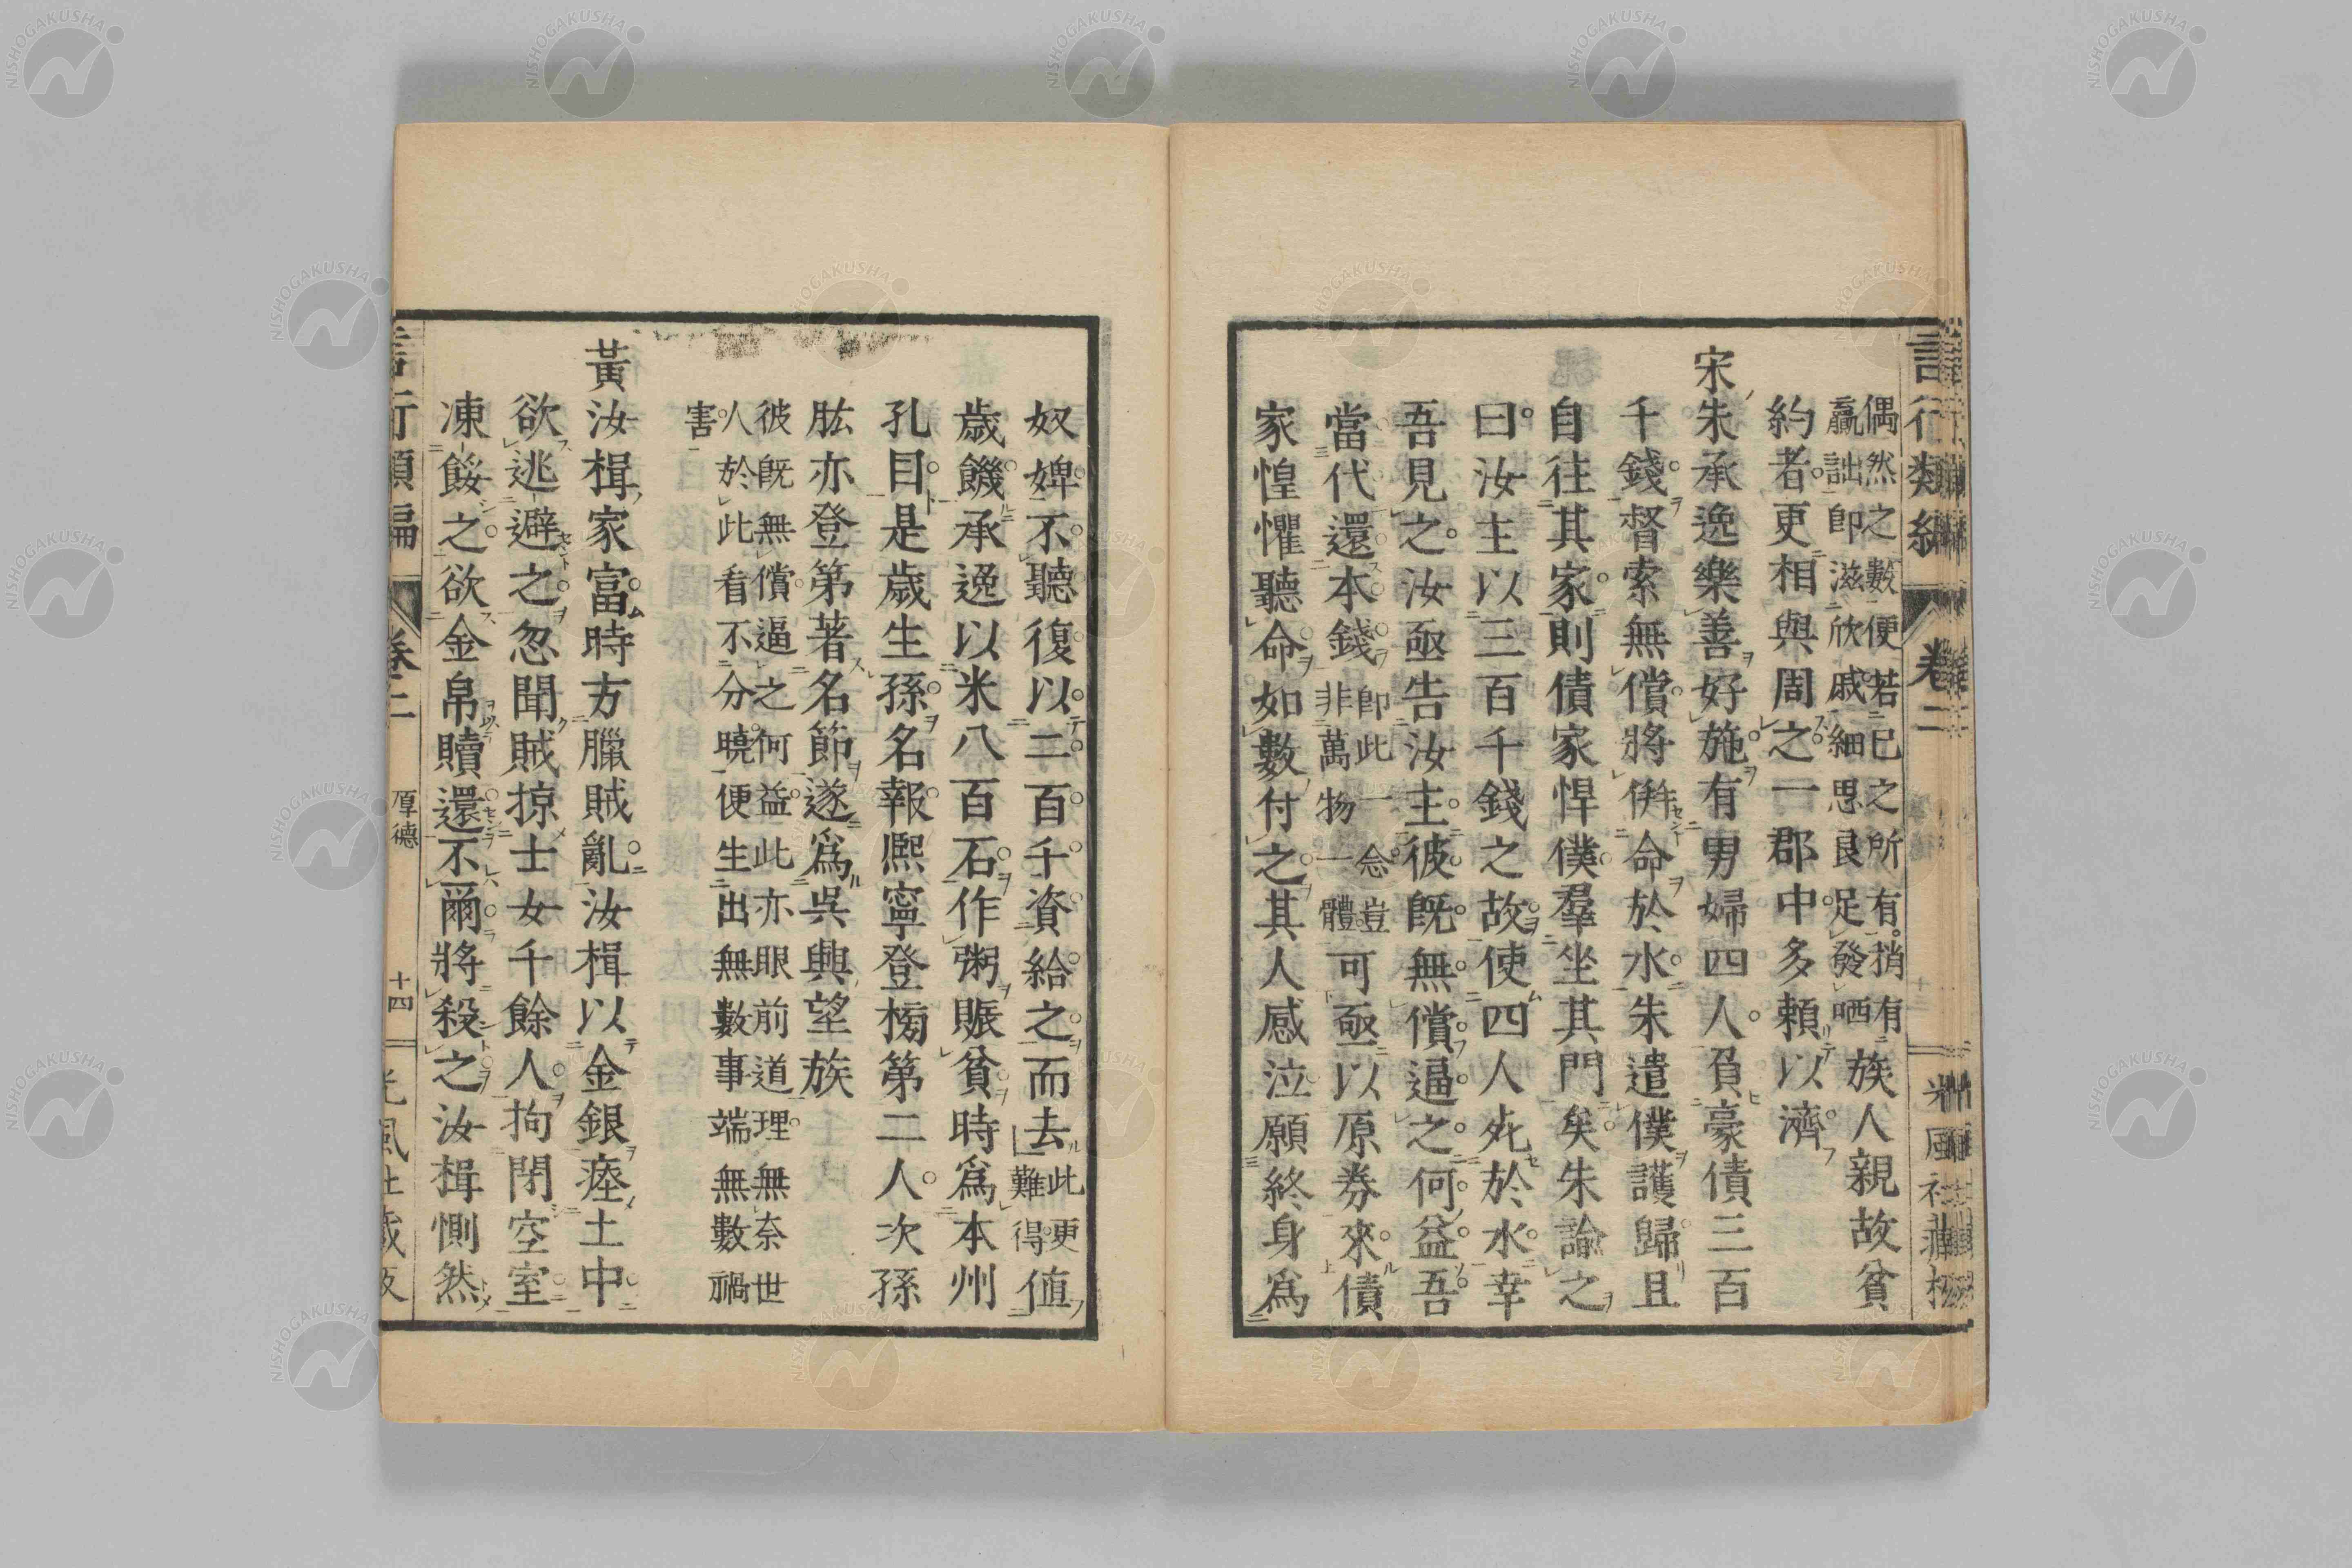 偶然之數便若已之所有稍有
贏詘卽滋欣戚細思良足發哂
族人親故貧
約者更相與周之一郡中多賴以濟
宋朱承逸樂善好施有男婦四人負豪債三百
千錢督索無償將倂命於水朱遣僕護歸且
自往其家則債家悍僕羣坐其門矣朱諭之
曰汝主以三百千錢之故使四人死於水幸
吾見之汝亟告汝主彼旣無償逼之何益吾
當代還本錢
卽此一念豈
非萬物一體
可亟以原券來債
家惶懼聽命如數付之其人感泣願終身爲
奴婢不聽復以二百千資給之而去
此更
難得
値
歲饑承逸以米八百石作粥賑貧時爲本州
孔目是歲生孫名報熙寧登榜第二人次孫
肱亦登第著名節遂爲吳興望族
彼旣無償逼之何益此亦眼前道理無奈世
人於此看不分曉便生出無數事端無數禍
害
黃汝楫家富時方臘賊亂汝楫以金銀瘞土中
欲逃避之忽聞賊掠士女千餘人拘閉空室
凍餒之欲金帛贖還不爾將殺之汝楫惻然
卷二
厚德
十四
NISHOGAKUSHA